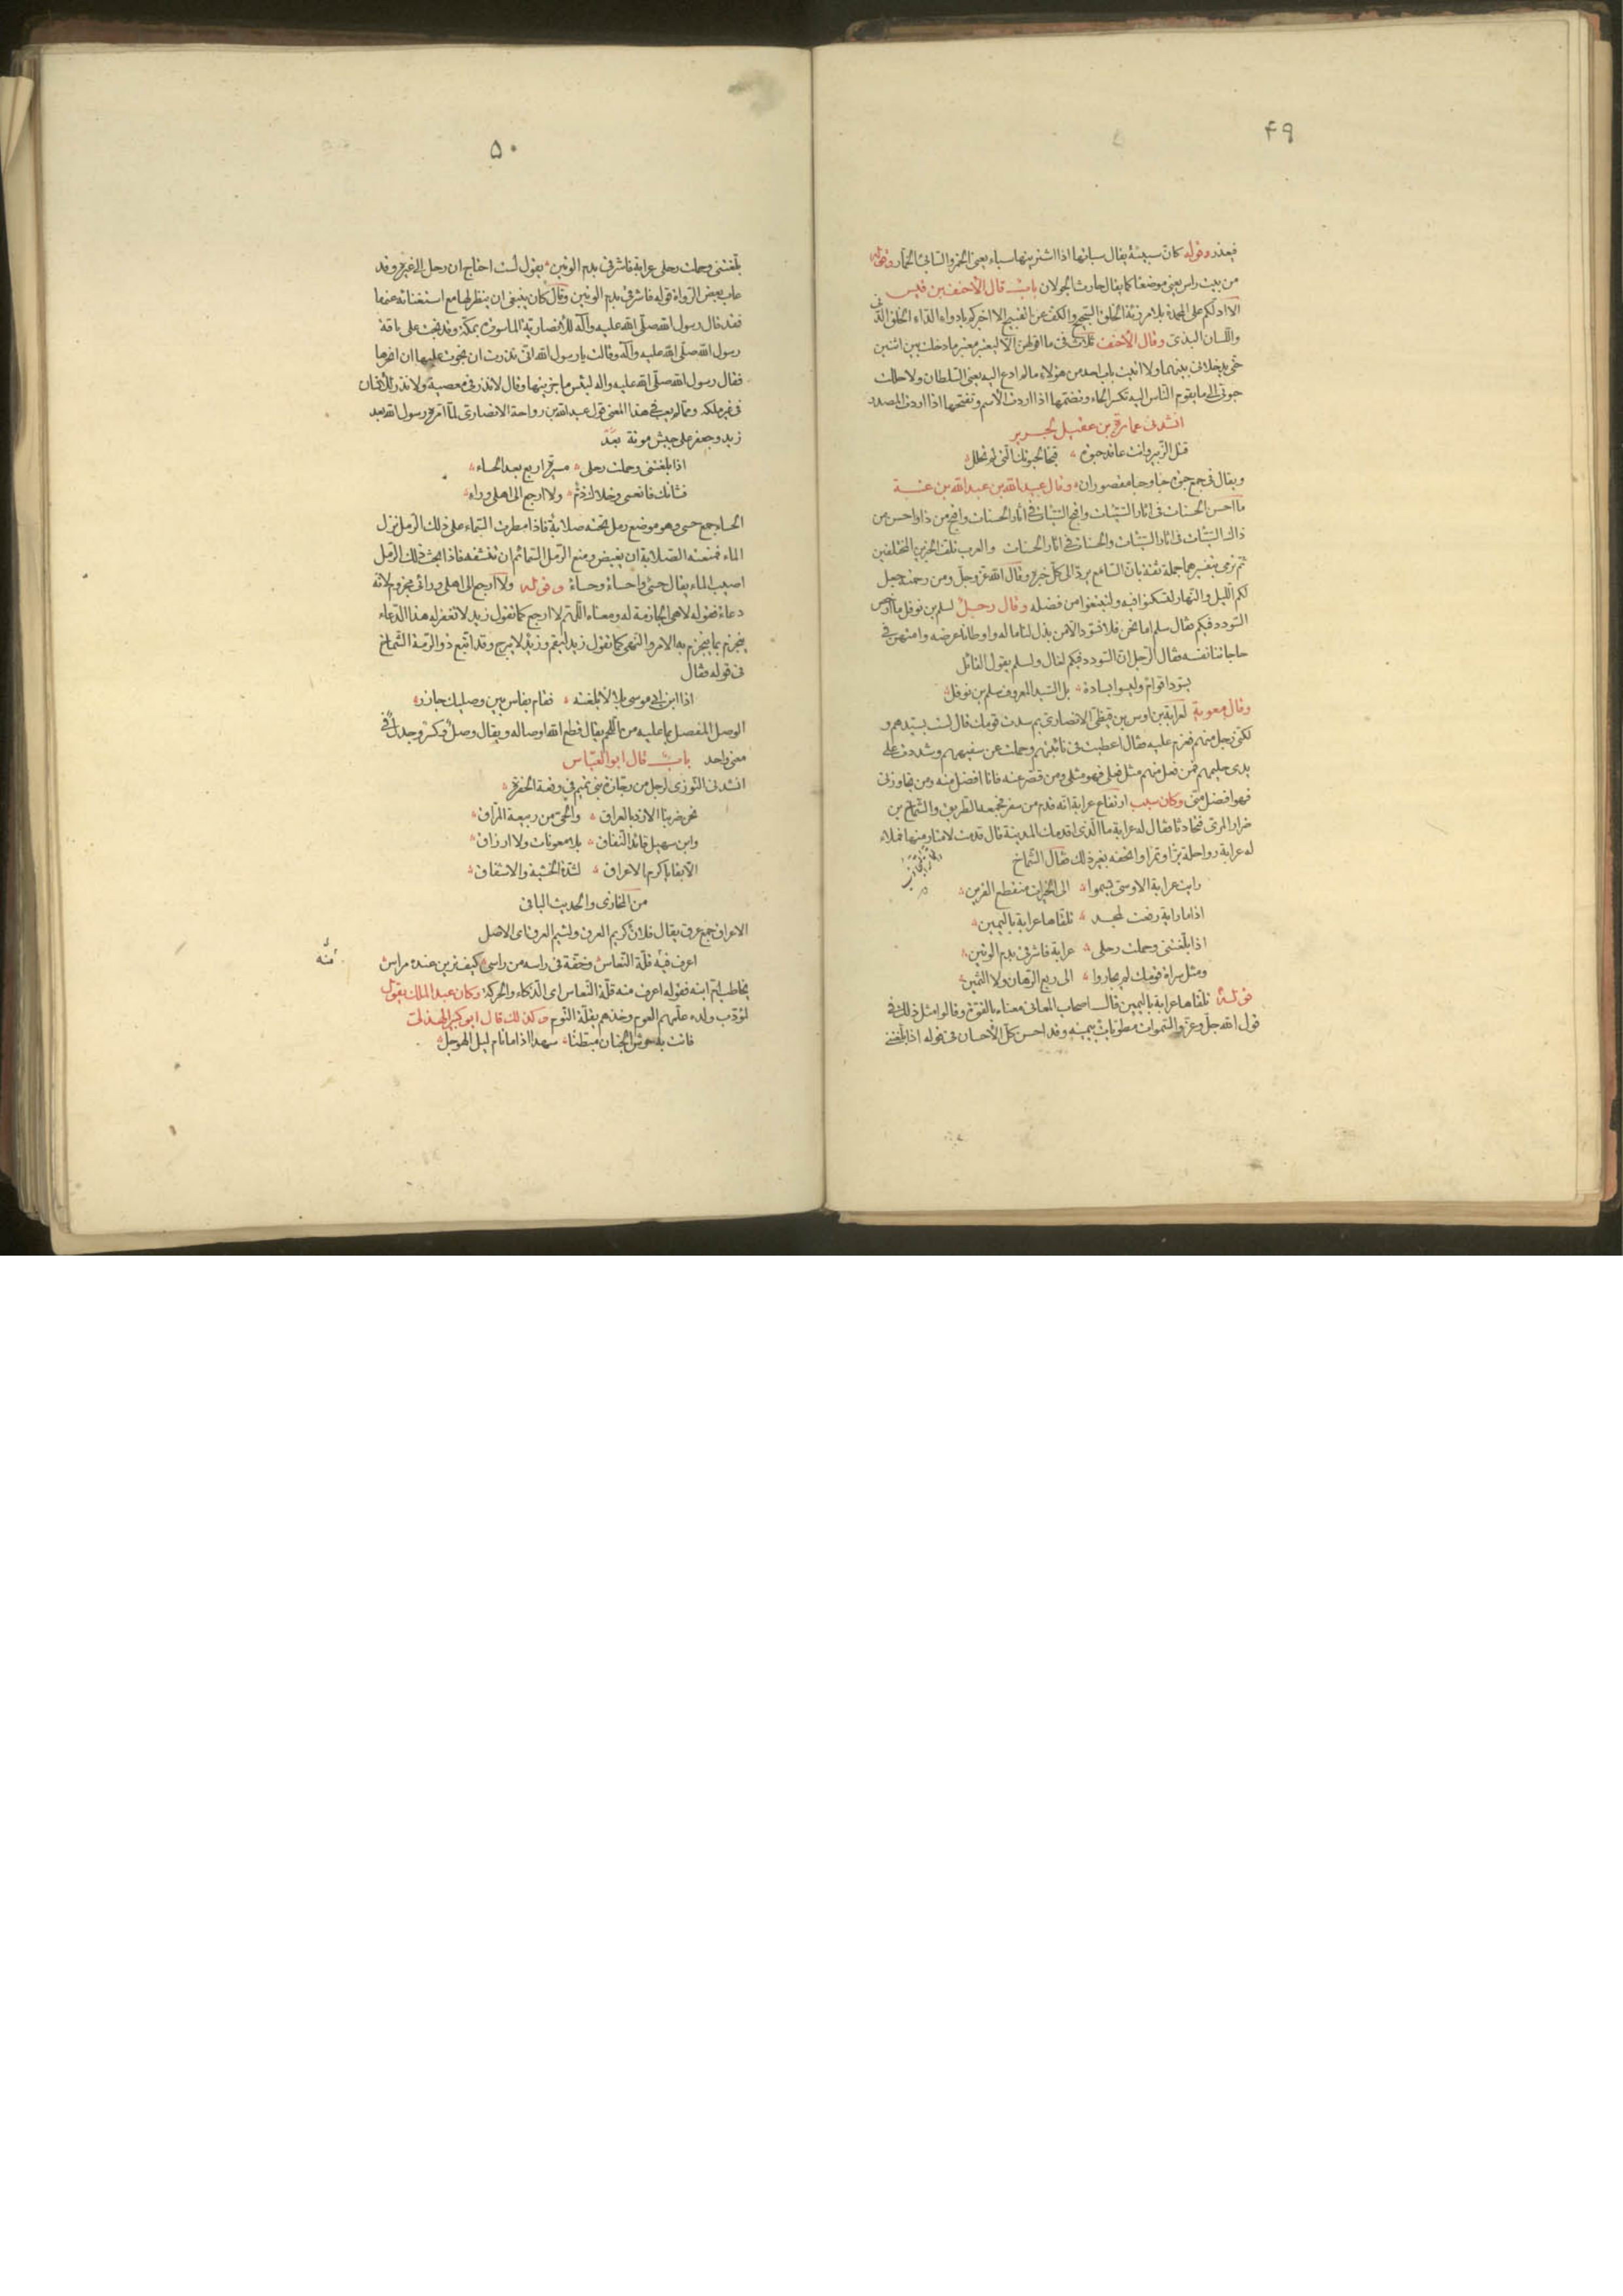 ۴۹
فيعذر وقوله كانّ سبيئة يقال سبأتها اذا اشتريتها سباء يعنى الخمر والسابئ الخمّار وقوله
من بيت راس يعنى موضعًا كما يقال حارث الجولان باب قال الأحنف بن قيس
الا ادلّكم على المحمدة بلا مرزئة الخلق السجيح والكفّ عن القبيح الا اخبركم بادواء الداء الخلق الدّنى
واللسان البذى وقال الأحنف ثلاث فىّ ما اقولهنّ الّا ليعتبر معتبر ما دخلت بين اثنين
حتى يدخلانى بينهما ولا اتيت باب احد من هؤلاء ما لم ادع اليه يعنى السلطان ولا حللت
حبوتى الى ما يقوم الناس اليه تكسر الحاء وتضمّها اذا اردت الاسم وتفتحها اذا اردت المصدر
انشدنى عمارة بن عقيل لجرير
قتل الزّبير وانت عاقد حبوة قبحًا لحبوتك الّتى لم تحلل
ويقال فى جمع حبوة حبا وحبا مقصوران وقال عبد الله بن عبد الله بن عتبة
ما احسن الحسنات فى اثار السّيّئات واقبح السّيّئات فى اثار الحسنات واقبح من ذا واحسن من
ذاك السيّئات فى اثار السّيّئات والحسنات فى اثار الحسنات والعرب تلفّ الخبرين المختلفين
ثم ترمى بتفسيرهما جملة ثقة بانّ السّامع يردّ الى كلّ خبره وقال الله عزّ وجلّ ومن رحمته جعل
لكم الّليل والنّهار لتسكنوا فيه ولتبتغوا من فضله وقال رجل لسلم بن نوفل ما ارخص
السّودد فيكم فقال سلم اما نحن فلا نسوّد الّا من بذل لنا ماله واوطانا عرضه وامتهن فى
حاجاتنا نفسه فقال الرّجل انّ السّودد فيكم لغال ولسلم يقول القائل
يسوّد اقوام وليسوا بسادة بل السّيّد المعروف سلم بن نوفل
وقال معوية لعرابة بن اوس بن قيظىّ الانصارى بم سدت قومك قال لست بسيّدهم و
لكنّى رجل منهم فعزم عليه فقال اعطيت فى نائبتهم وحملت عن سفيههم وشددت على
يدى حليمهم فمن فعل منهم مثل فعلى فهو مثلى ومن قصّر عنه فانا افضل منه ومن تجاوزنى
فهو افضل منّى وكان سبب ارتفاع عرابة انّه قدم من سفر فجمعه الطّريق والشّماخ بن
ضرار المرّى فتحادثا فقال له عرابة ما الّذى اقدمك المدينة قال قدمت لامتار منها فملاء
له عرابة رواحله برًّا وتمرًا واتحفه بغير ذلك فقال الشّماخ
رايت عرابة الاوسىّ يسموا الى الخيرات منقطع القرين
اذا ما راية رفعت لمجد تلقّاها عرابة باليمين
اذا بلّغتنى وحملت رحلى عرابة فاشرقى بدم الوتين
ومثل سراة قومك لم يجاروا الى ربع الرّهان ولا الثّمين
قوله تلقّاها عرابة باليمين قال اصحاب المعانى معناه بالقوّة وقالوا مثل ذلك فى
قول الله جلّ وعزّ والسّموات مطويّات بيمينه وقد احسن كلّ الأحسان فى قوله اذا بلّغتنى
۵۰
بلّغتنى وحملت رحلى عرابة فاشرقى بدم الوتين يقول لست احتاج ان رحل الى غيره وقد
عاب بعض الرّواة قوله فاشرقى بدم الوتين وقال كان ينبغى ان ينظر لها مع استغنائه عنها
فقد قال رسول الله صلّى الله عليه وآله للأنصاريّة الماسورة بمكّة وقد نجت على ناقة
رسول الله صلّى الله عليه وآله وقالت يا رسول الله انّى نذرت ان نجوت عليها ان انحرها
فقال رسول الله صلّى الله عليه واله لبئس ما جزيتها وقال لا نذر فى معصية ولا نذر للأنسان
فى غير ملكه وممّا لم يعب فى هذا المعنى قول عبد الله بن رواحة الانصارى لمّا امّره رسول الله بعد
زيد وجعفر على جيش موتة
اذا بلّغتنى وحملت رحلى مسيرة اربع بعد الحساء
فشأنك فانعمى وخلاك ذمّ ولا ارجع الى اهلى وراء
الحساء جمع حسى وهو موضع رمل تحته صلابة فاذا مطرت السّماء على ذلك الرّمل نزل
الماء فمنعته الصّلابة ان يغيض ومنع الرّمل السّمائم ان تنشفه فاذا بحث ذلك الرّمل
اصيب الماء يقال حسى واحساء وحساء وقوله ولا ارجع الى اهلى ورائى مجزوم لانّه
دعاء فقوله لا هى الجازمة له ومعناه اللّهمّ لا ارجع كما تقول زيد لا تغفر له هذا الدّعاء
ينجزم بما ينجزم به الامر والنّهى كما تقول زيد ليقم وزيد لا يبرح وقد اتّبع ذو الرّمّة الشّماخ
فى قوله فقال
اذا ابن ابى موسى بلالا بلغته فقام بفاس بين وصليك جازر
الوصل المفصل بما عليه من اللّحم يقال قطع الله اوصاله ويقال وصل وكسر وجدل فى
معنى واحد باب قال ابو العبّاس
انشدنى التّوزى لرجل من رجّازة بنى تميم فى وقعة الجفرة
نحن ضربنا الازد بالعراق والحىّ من ربيعة المرّاق
وابن سهيل قائد النّفاق بلا معونات ولا ارزاق
الّا بقايا كرم الاعراق لشدّة الخشية والاشفاق
من المخازى والحديث الباقى
الاعراق جمع عرق يقال فلان كريم العرق ولئيم العرق اى الاصل
اعرف فيه قلّة النّعاس وخفّة فى راسه من راسى كيف ترين عنده مراس
منه
يخاطب امّ ابنه فقوله اعرف منه قلّة النّعاس اى الذّكاء والحركة وكان عبد الملك يقول
لمؤدّب ولده علّمهم العوم وخذهم بقلّة النّوم وكذلك قال ابو كبير الهذلى
فاتت به حوش الجنان مبطّنًا سهدا اذا ما نام ليل الهوجل